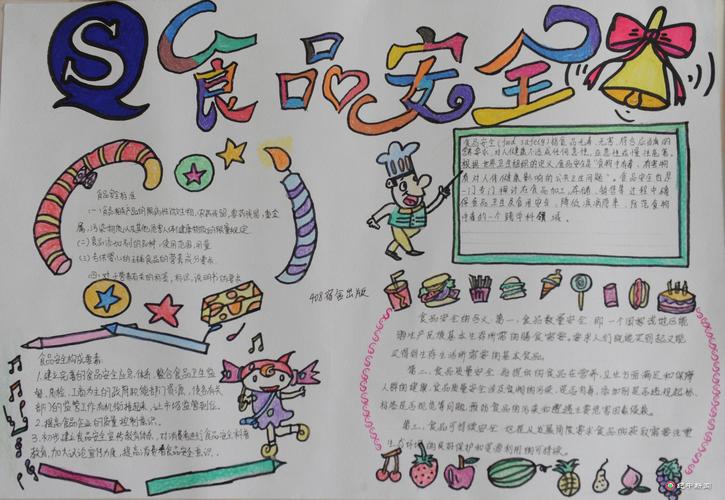 食品安全
食品安全(food safety)指食品无毒、无害,符合应当有的
营养要求,对人体健康不造成任何急性、亚急性或慢性危害。
根据世界卫生组织的定义,食品安全是"食物中有毒、有害物
质对人体健康影响的公共卫生问题"。食品安全也是
一门专门探讨在食品加工、存储、销售等过程中确
保食品卫生及食用安全,降低疾病隐患,防范食物
中毒的一个跨学科领域。
食品安全标准
(一)食品相关产品的致病性微生物、农药残留、兽药残留、重金
属、污染物质以及其他危害人体健康物质的限量规定
(二)食品添加剂的品种、使用范围、用量
(三)专供婴幼的主辅食品的营养成分要求
(四)对于营养有关的标签、标识、说明书的要求
408宿舍出版
食品安全构成要素
1.建立完善的食品安全应急体系,整合食品卫生监
督、质检、工商为主的政府职能部门资源,使各有关
部门的监管工作有机衔接起来,让市场监管到位。
2.提高食品企业的质量控制意识。
3.初步建立食品安全宣传教育体系,对消费者进行食品安全科普
教育,加大舆论宣传力度,提高消费者食品安全意识。
食品安全的含义 第一,食品数量安全 即一个国家或地区能
够生产民族基本生存所需的膳食需要。要求人们既能买到又能买
得到生存生活所需要的基本食品。
第二,食品质量安全 指提供的食品在营养,卫生方面满足和保障
人群的健康,食品质量安全涉及食物的污染、是否有毒,添加剂是否违规超标、
标签是否规范等问题,预防食品的污染和遭遇主要危害因素侵袭。
第三,食品可持续安全 这是从发展角度要求食品的获取需要注重
生态环境的良好保护和资源利用的可持续。